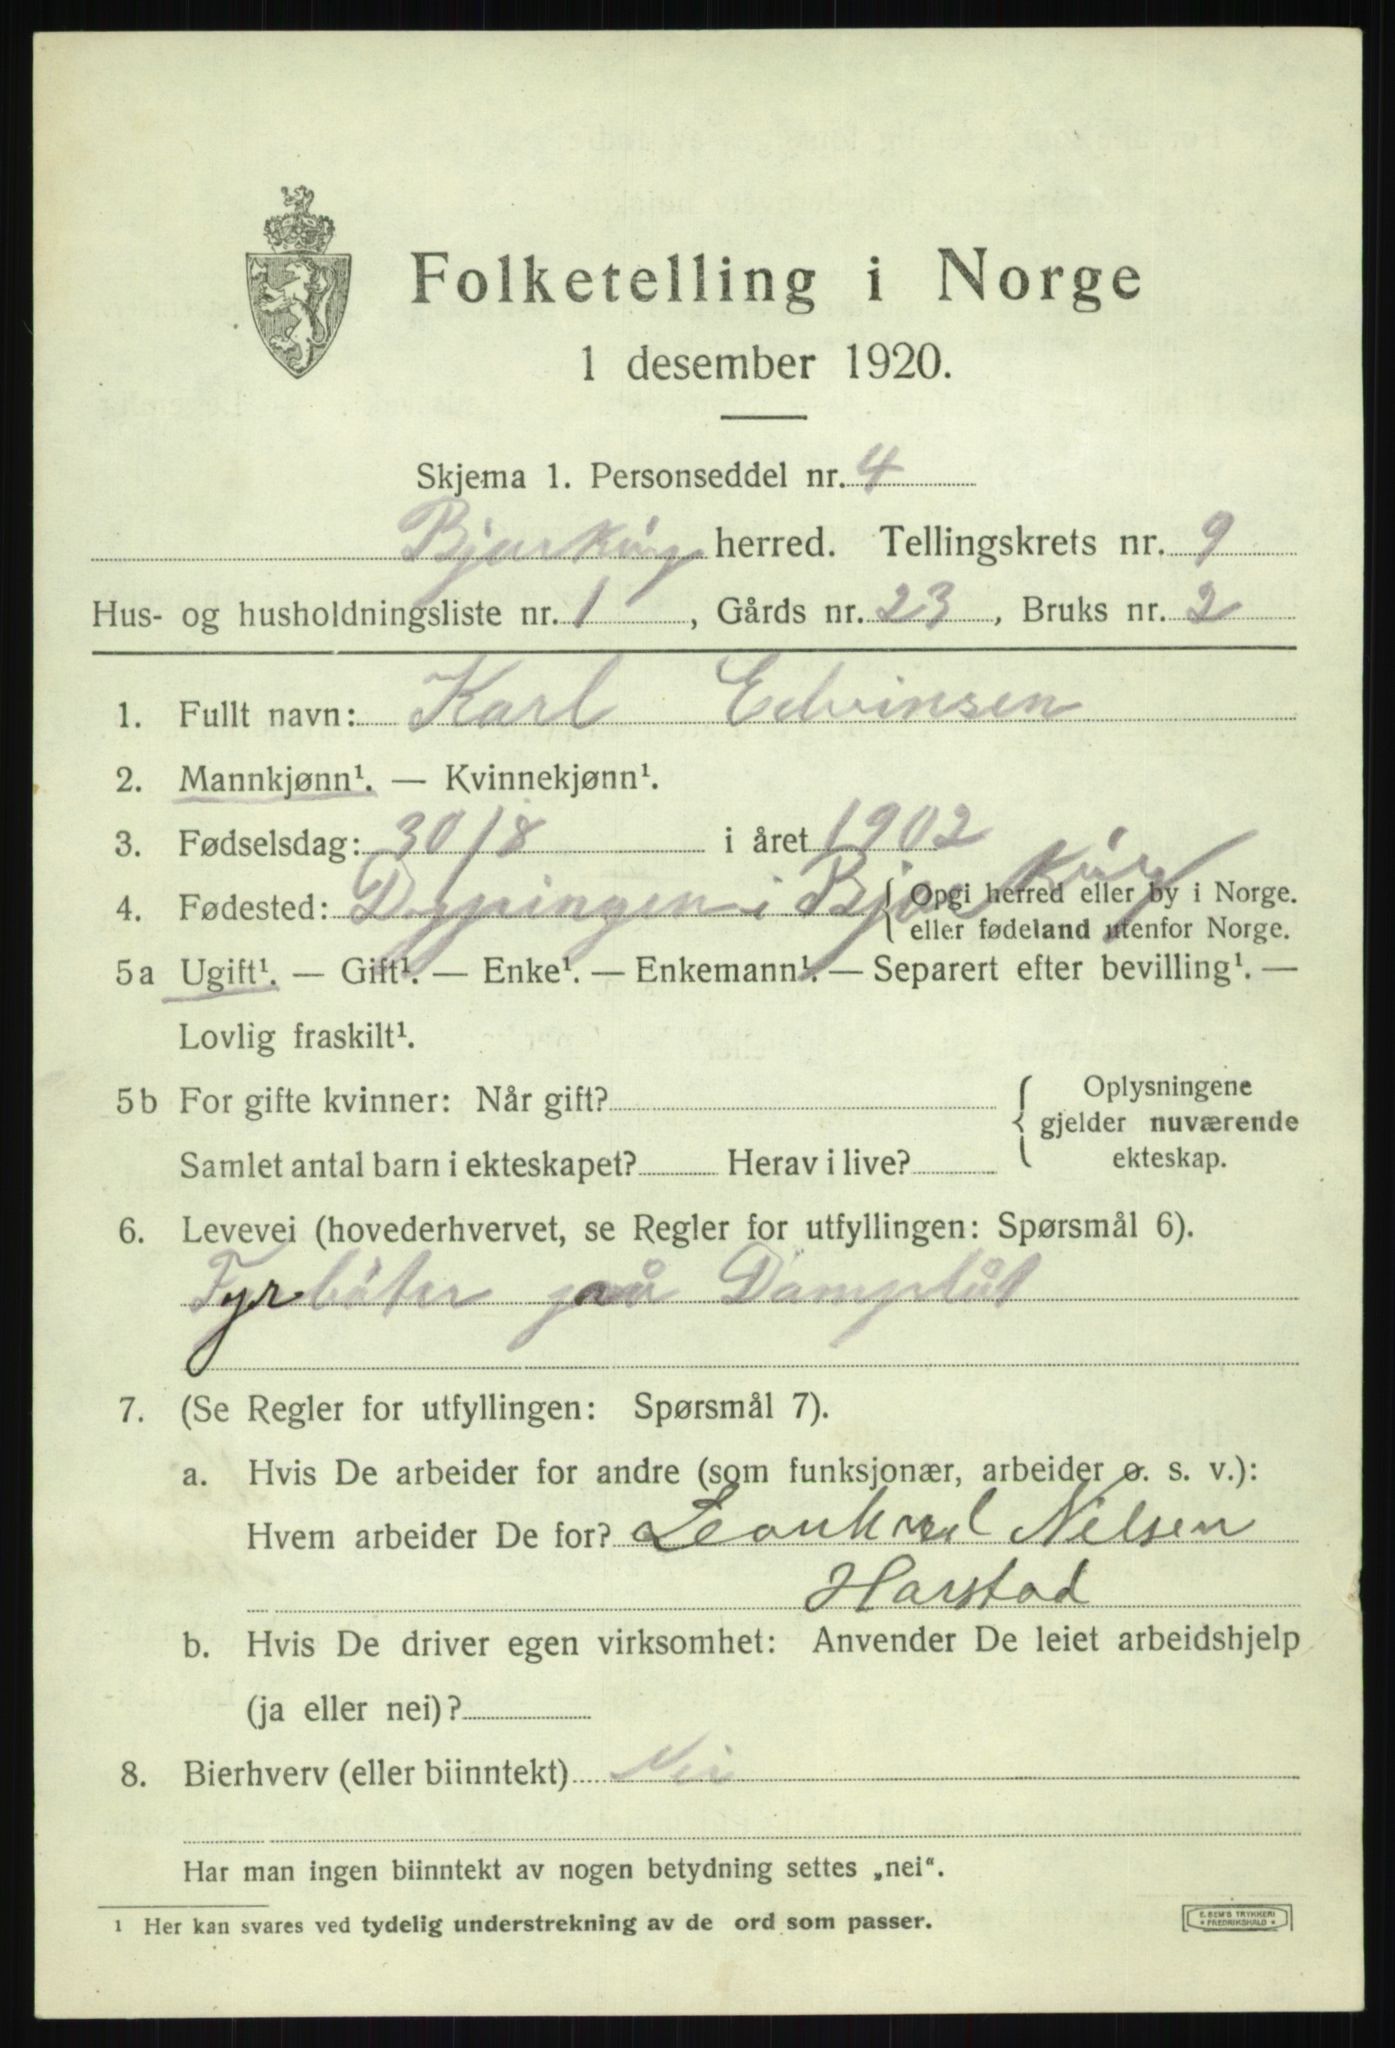 Folketelling i Norge
1 desember 1920.
Skjema 1. Personseddel nr. 4
Bjarkøy herred. Tellingskrets nr. 9
Hus- og husholdningsliste nr. 1, Gårds nr. 23, Bruks nr. 2
1. Fullt navn: Karl Edvinsen
2. Mannkjønn¹. — Kvinnekjønn¹.
3. Fødselsdag: 30/8 i året 1902
4. Fødested: Dypingen i Bjarkøy { Opgi herred eller by i Norge.
eller fødeland utenfor Norge.
5a Ugift¹. — Gift¹. — Enke¹. — Enkemann¹. — Separert efter bevilling¹. —
Lovlig fraskilt¹.
5b For gifte kvinner: Når gift? { Oplysningene
gjelder nuværende
ekteskap.
Samlet antal barn i ekteskapet? Herav i live?
6. Levevei (hovederhvervet, se Regler for utfyllingen: Spørsmål 6).
Fyrböter på Dampbåt
7. (Se Regler for utfyllingen: Spørsmål 7).
a. Hvis De arbeider for andre (som funksjonær, arbeider o. s. v.):
Hvem arbeider De for? Leonhard Nilsen
Harstad
b. Hvis De driver egen virksomhet: Anvender De leiet arbeidshjelp
(ja eller nei)?
8. Bierhverv (eller biinntekt) Nei
Har man ingen biinntekt av nogen betydning settes „nei“.
¹ Her kan svares ved tydelig understrekning av de ord som passer.
E. SEM'S TRYKKERI
* FREDRIKSHALD *